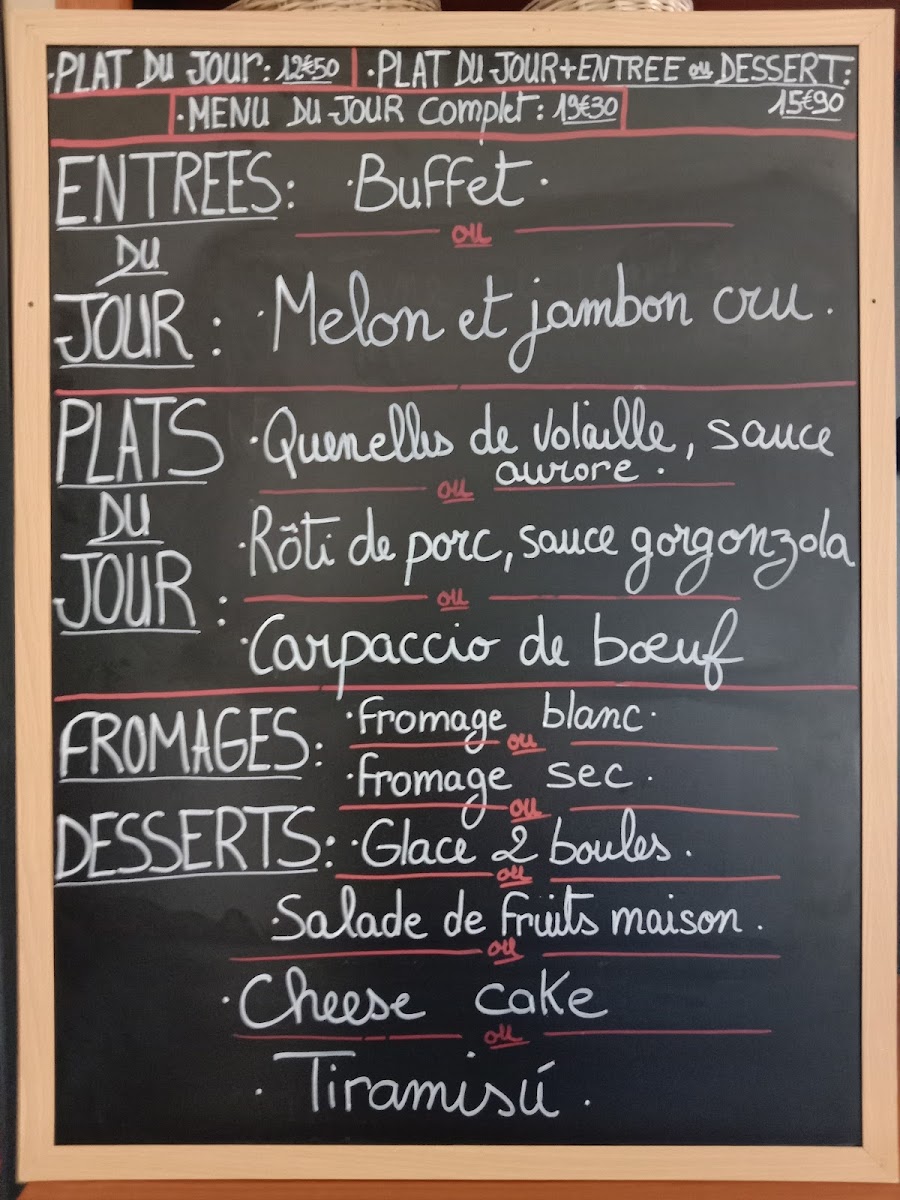 ·PLAT DU JOUR: 12€50 ·PLAT DU JOUR+ENTREE ou DESSERT:
·MENU DU JOUR complet: 19€30 15€90
ENTREES: ·Buffet·
ou
DU
JOUR: ·Melon et jambon cru.
PLATS ·Quenelles de volaille, sauce
aurore.
ou
DU
·Rôti de porc, sauce gorgonzola
JOUR:
ou
·Carpaccio de bœuf
FROMAGES: ·fromage blanc·
ou
·fromage sec.
ou
DESSERTS: ·Glace 2 boules.
ou
·Salade de fruits maison.
ou
·Cheese cake
ou
·Tiramisú.